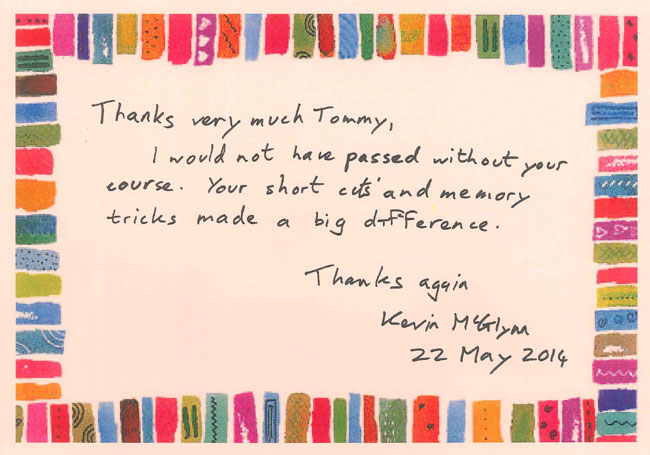 Thanks very much Tommy,
I would not have passed without your
course. Your short cuts and memory
tricks made a big difference.
Thanks again
Kevin McGlynn
22 May 2014